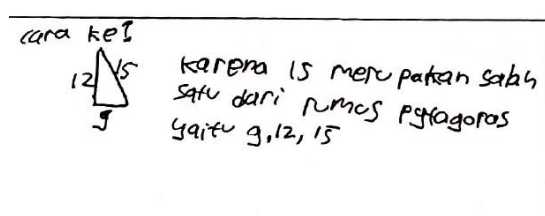 cara ke I
12 15
9
karena 15 merupakan salah
satu dari rumus pytagoras
yaitu 9,12,15